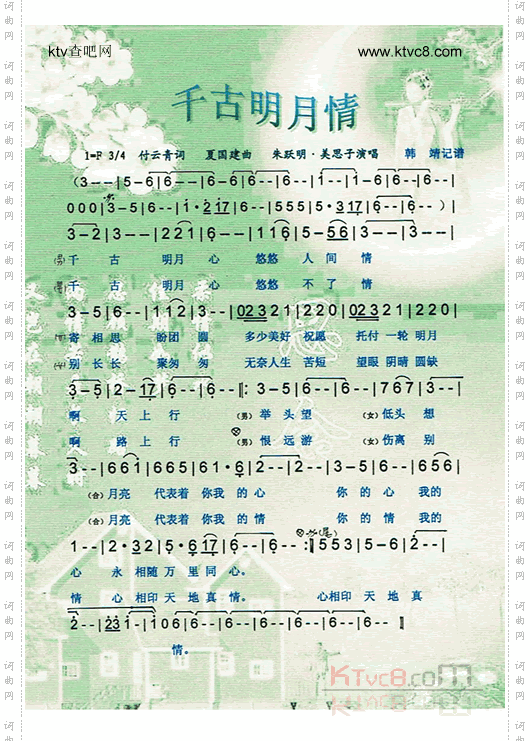 ktv查吧网 www.ktvc8.com
千古明月情
1=F 3/4 付云青词 夏国建曲 朱跃明·美思子演唱 韩 靖记谱
(3--|5-6|6--|6-6|6--|1--|1-6|6--|
000|3-5|6--|1·217|6--|5·317|6--|6--)|
3-2|3--|3-5|6--|116|5-56|3--|3--|
千 古 明月 心 悠悠 人 间 情
千 古 明月 心 悠悠 不 了 情
3-5|6--|112|3--|02321|220|02321|220|
寄 相 思 盼团 圆 多少美好 祝愿 托付 一轮 明月
别 长 长 聚匆 匆 无奈人生 苦短 望眼 阴晴 圆缺
3-5|2-17|6--|6--:|3-5|6--|6--|767|3--|
啊 天 上 行 (男)举 头 望 (女)低头 想
啊 路 上 行 (男)恨 远 游 (女)伤离 别
3--|661|665|61·6|2--|2--|3-5|6--|656|
(合)月亮 代表着 你我 的 心 你 的 心 我的
(合)月亮 代表着 你我 的 情 你 的 情 我的
1--|2·32|5·617|6--|6--:|553|5-6|2--|
心 永 相随 万 里 同 心。
情 心 相印 天 地 真 情。 心相印 天 地 真
2--|231-|106|6--|6--|6--|6--‖
情。
KTvc8.com
词曲网